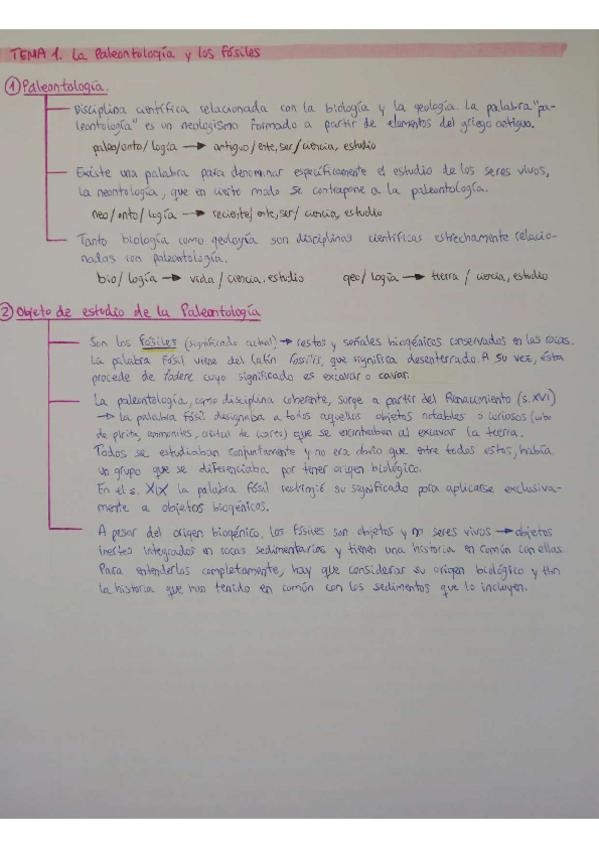 TEMA 1. La Paleontología y los fósiles
1 Paleontología.
Disciplina científica relacionada con la biología y la geología. La palabra "pa-
leontología" es un neologismo formado a partir de elementos del griego antiguo.
paleo/onto/logía → antiguo/ente, ser/ciencia, estudio
Existe una palabra para denominar específicamente el estudio de los seres vivos,
la neontología, que en cierto modo se contrapone a la paleontología.
neo/onto/logía → reciente/ente, ser/ciencia, estudio
Tanto biología como geología son disciplinas científicas estrechamente relacio-
nadas con paleontología.
bio/logía → vida/ciencia, estudio geo/logía → tierra/ciencia, estudio
2 Objeto de estudio de la Paleontología
Son los fósiles (significado actual) → restos y señales biogénicos conservados en las rocas.
La palabra fósil viene del latín fossilis, que significa desenterrado. A su vez, ésta
procede de fodere cuyo significado es excavar o cavar.
La paleontología, como disciplina coherente, surge a partir del Renacimiento (s. XVI)
→ la palabra fósil designaba a todos aquellos objetos notables o curiosos (cubo
de pirita, ammonites, cristal de cuarzo) que se encontraban al excavar la tierra.
Todos se estudiaban conjuntamente y no era obvio que entre todos estas, había
un grupo que se diferenciaba por tener origen biológico.
En el s. XIX la palabra fósil restringió su significado para aplicarse exclusiva-
mente a objetos biogénicos.
A pesar del origen biogénico, los fósiles son objetos y no seres vivos → objetos
inertes integrados en rocas sedimentarias y tienen una historia en común con ellas.
Para entenderlos completamente, hay que considerar su origen biológico y tbn
la historia que han tenido en común con los sedimentos que lo incluyen.